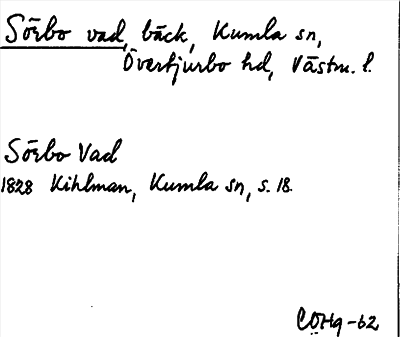 Sörbo vad, bäck, Kumla sn,
Övertjurbo hd, Västm. l.
Sörbo Vad
1828 Kihlman, Kumla sn, s. 18.
CÖHg -62